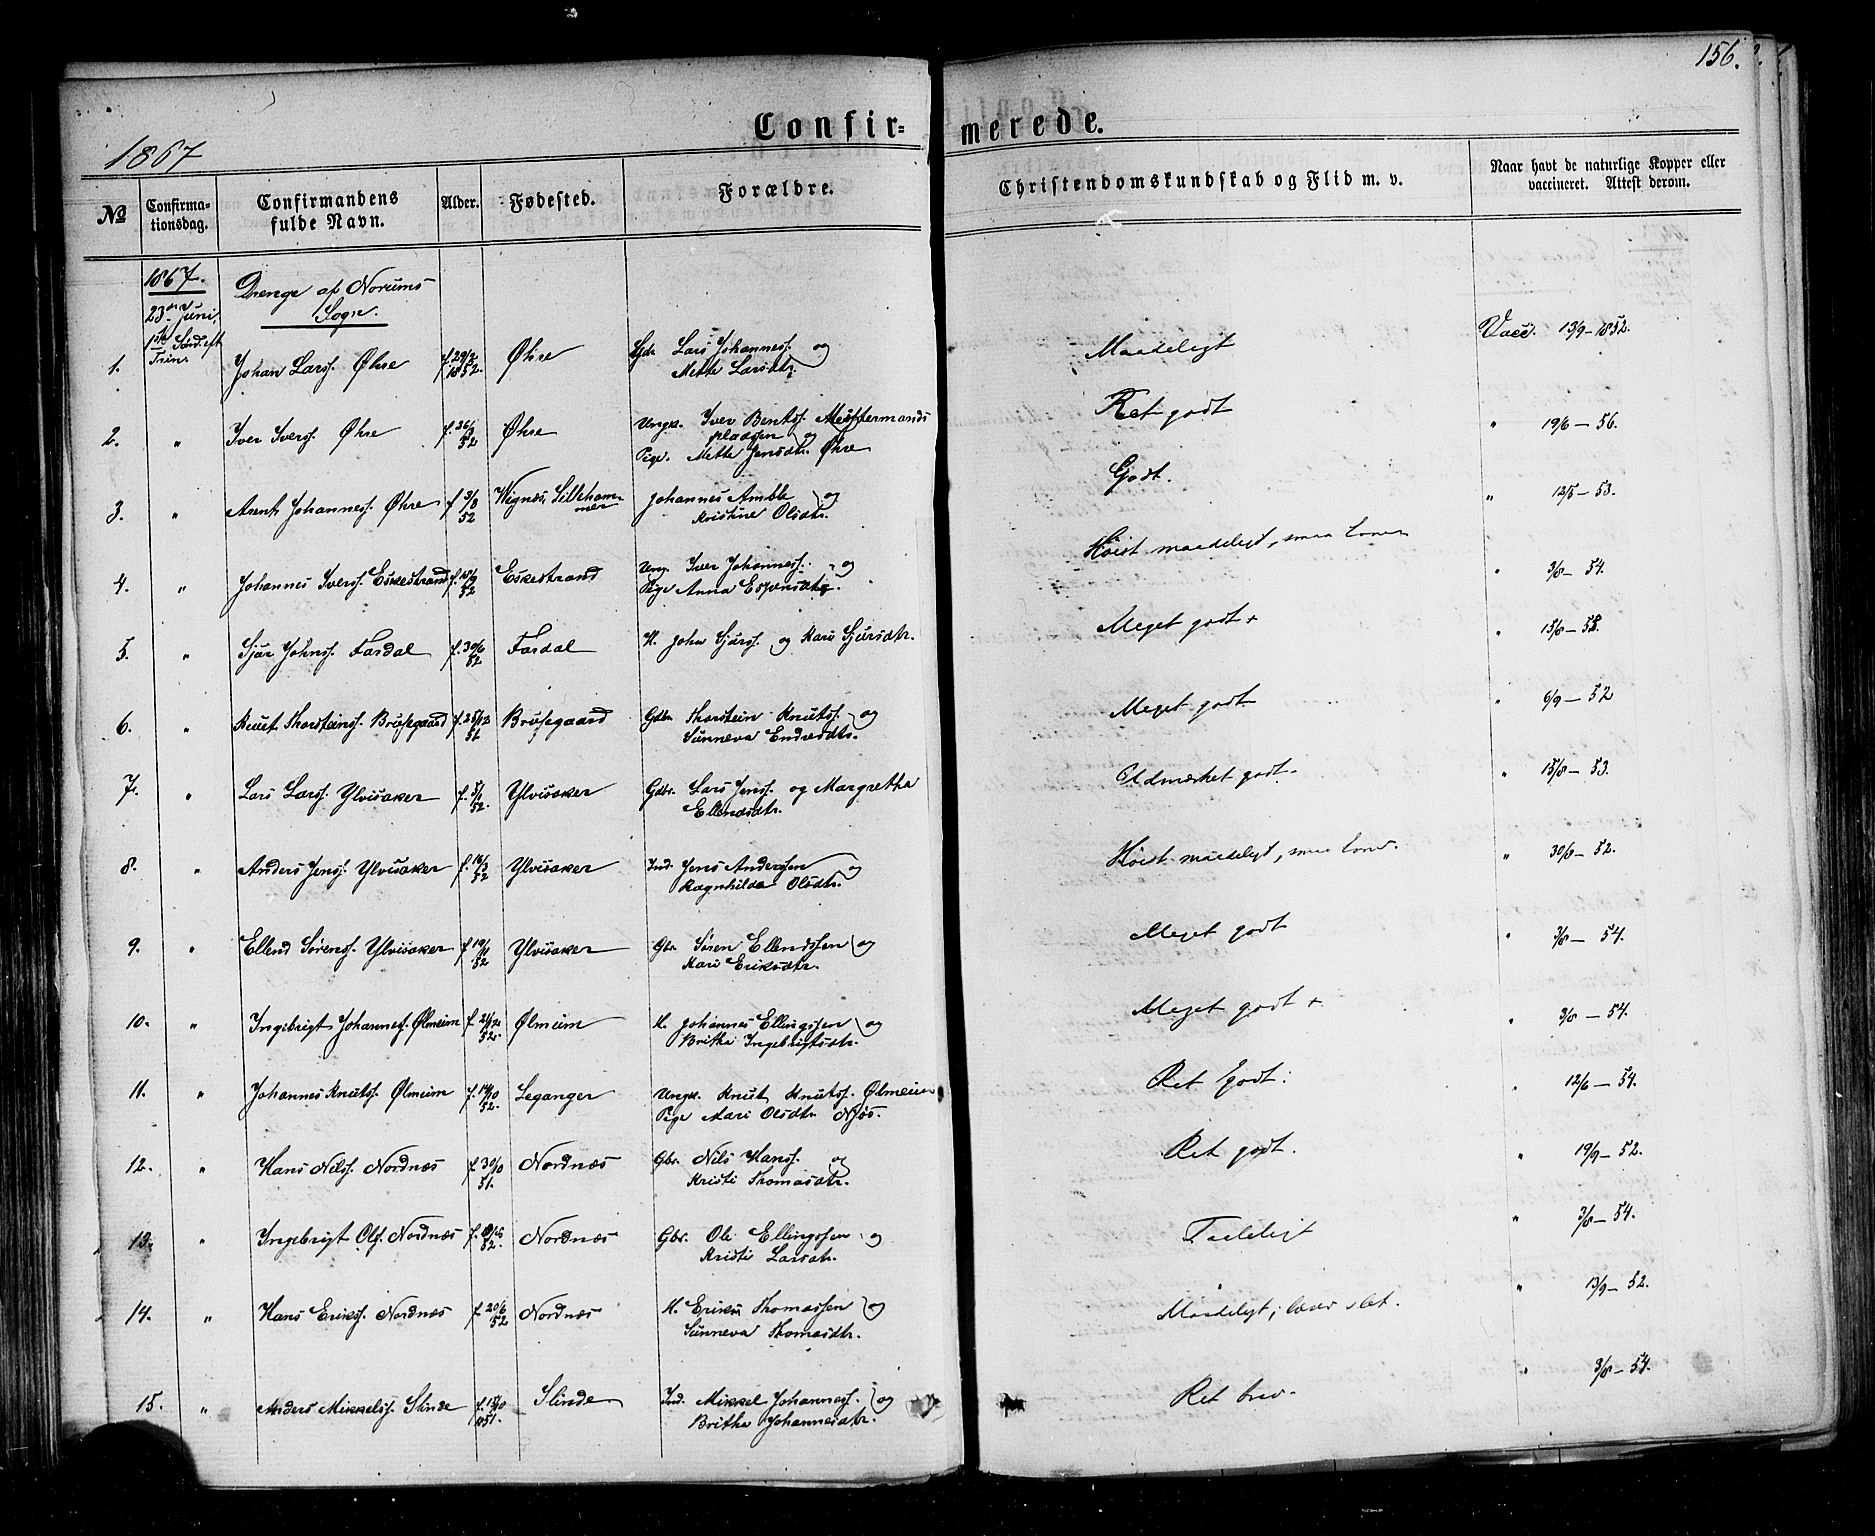 156.
Confir-
merede.
1867
No
Confirma-
tionsdag.
Confirmandens
fulde Navn.
Alder.
Fødested.
Forældre.
Christendomskundskab og Flid m. v.
Naar havt de naturlige Kopper eller
vaccineret. Attest derom.
1867.
23de Juni,
1ste Sønd. eft.
Trin.
Drenge af Norums
Sogn.
1. Johan Larss. Øhre f. 29/2 1852. Øhre Gdr. Lars Johanness. og
Mette Larsdtr. Maadeligt Vacc. 13/9-1852.
2. " Iver Iverss. Øhre f. 26/3 52 Øhre Ungk. Iver Bentss. Mestermands
pladsen og
Pige. Mette Jensdtr. Øhre Ret godt " 19/6-56.
3. " Arent Johanness. Øhre f. 3/8 52 Wignæs, Lilleham-
mer Johannes Amble og
Kristine Olsdtr. Godt. " 12/5-53.
4. " Johannes Iverss. Eskestrand f. 10/9 52 Eskestrand Ung. Iver Johanness. og
Pige Anna Espensdtr. Høist maadeligt, smaa Evner " 3/8-54.
5. " Sjur Johnss. Fardal f. 30/6 52 Fardal H. John Sjurss. og Kari Sjursdtr. Meget godt + " 15/8-52.
6. " Knut Thorsteinss. Brusegaard f. 25/12 51 Brusegaard Gdbr. Thorstein Knutss. og
Sunneva Endresdtr. Meget godt " 6/9-52
7. " Lars Larss. Ylvisaker f. 5/1 52. Ylvisaker Gdbr. Lars Jenss. og Margretha
Ellendsdtr. Udmærket godt. " 15/8-53.
8. " Anders Jenss. Ylvisaker f. 16/3 52 Ylvisaker Ind. Jens Anderssen og
Ragnhilda Olsdtr. Høist maadeligt, smaa Evner. " 30/8-52.
9. " Ellend Sørenss. Ylvisaker f. 19/1 52 Ylvisaker Gbr. Søren Ellendssen og
Kari Eriksdtr. Meget godt " 3/8-54.
10. " Ingebrigt Johanness. Ølmeim f. 21/12 52. Ølmeim H. Johannes Ellingssen og
Britha Ingebrigtsdtr. Meget godt + " 3/8-54.
11. " Johannes Knutss. Ølmeim f. 14/10 52. Leganger Ungk. Knut Knutss. Ølmeim
Pige Mari Olsdtr. Njøs. Ret godt. " 12/6-54.
12. " Hans Nilss. Nordnæs f. 30/10 51. Nordnæs Gbr. Nils Hanss. og
Kristi Thomasdtr. Ret godt. " 19/9-52.
13. " Ingebrigt Ols. Nordnæs f. 52. Nordnæs Gbr. Ole Ellingssen og
Kristi Larsdtr. Taaleligt " 3/8-54.
14. " Hans Erikss. Nordnæs f. 20/6 52 Nordnæs H. Erik Thomassen og
Sunneva Thomasdtr. Maadeligt; læser slet. " 13/9-52.
15. " Anders Mikkelss. Slinde f. 51. Slinde Ind. Mikkel Johanness. og
Britha Johannesdtr. Ret brav. " 3/8-54.